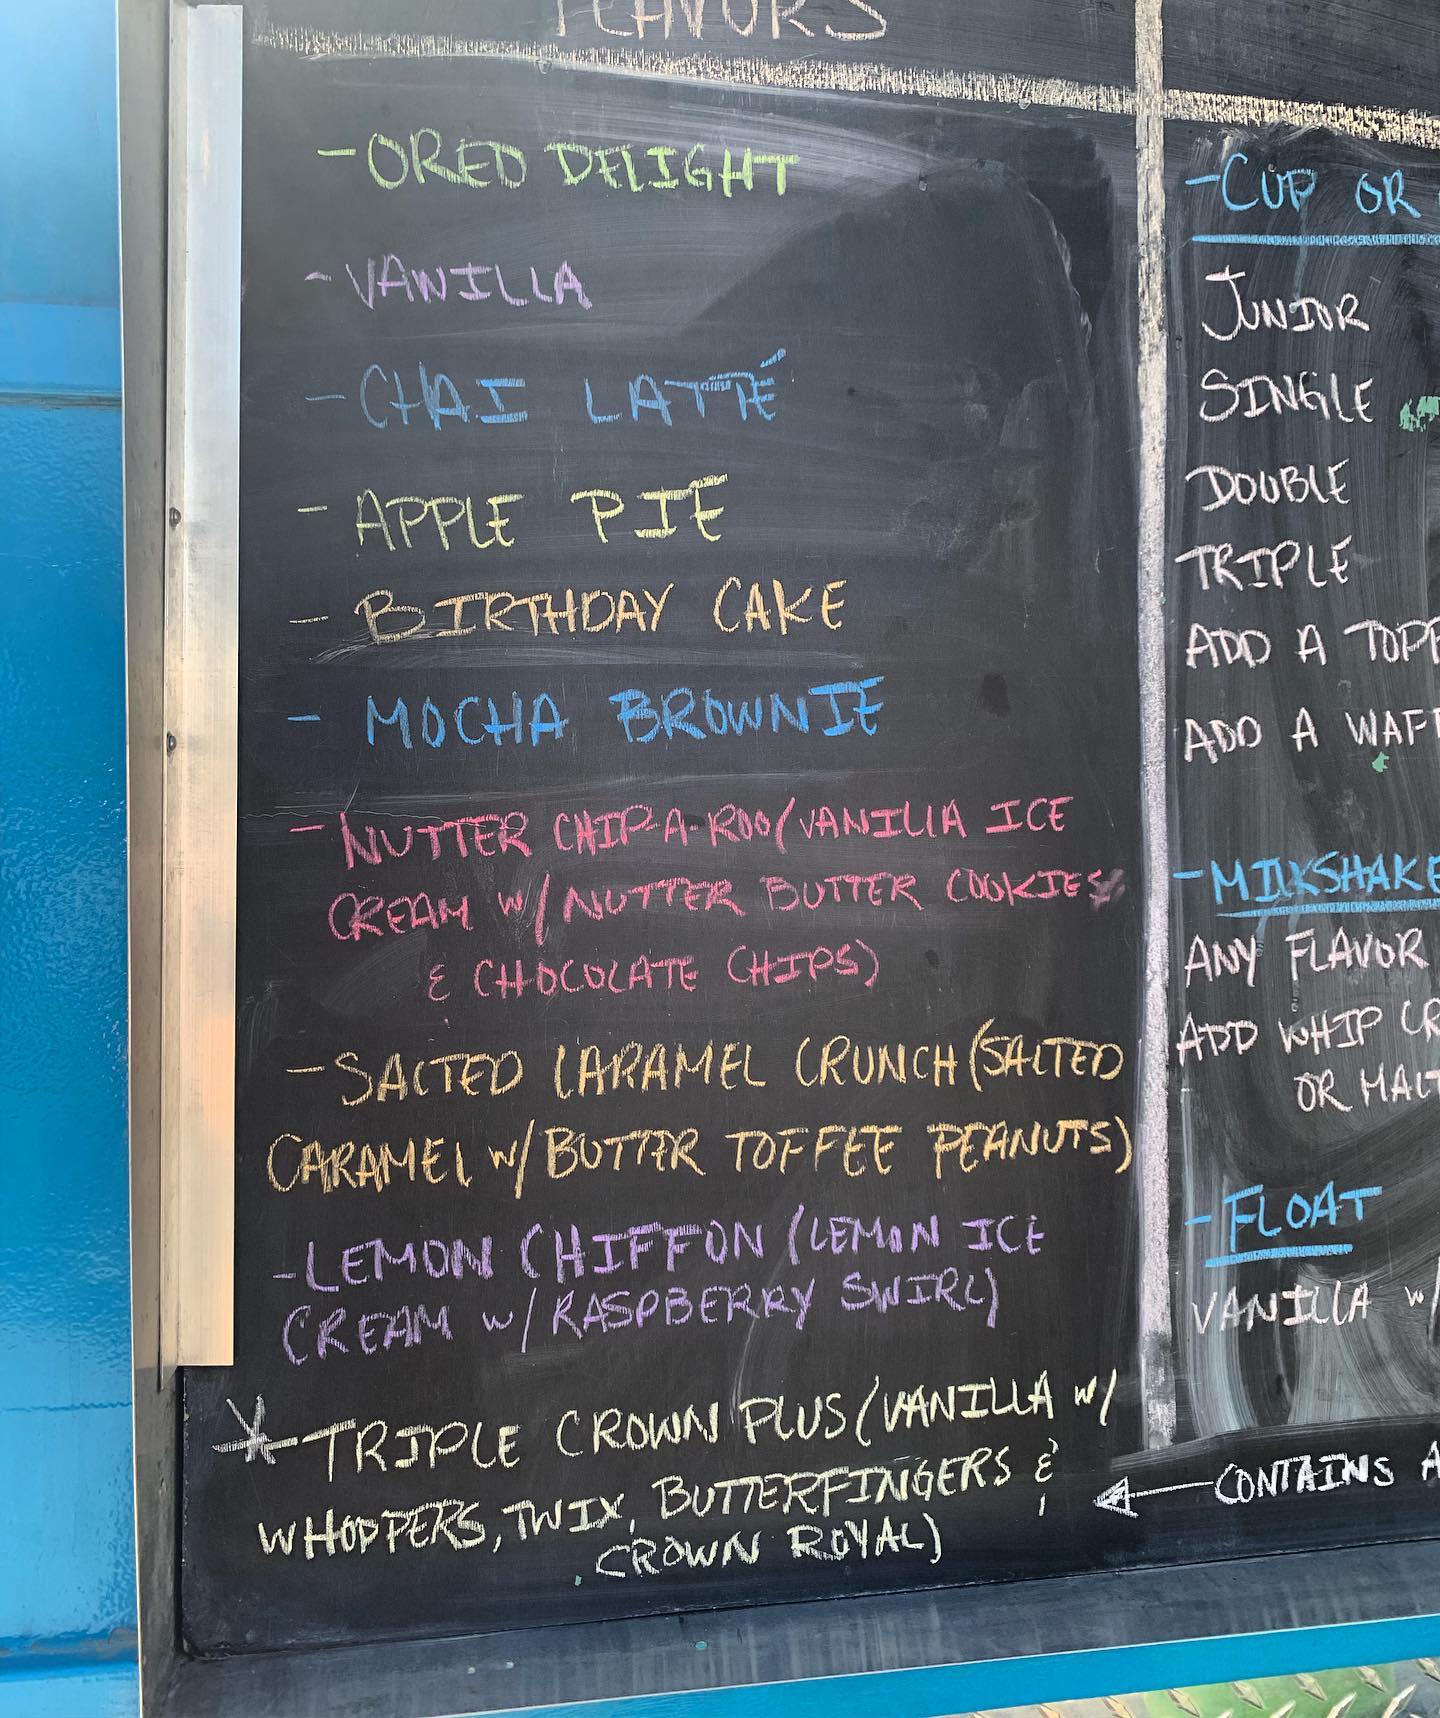 FLAVORS
-OREO DELIGHT
-VANILLA
-CHAI LATTÉ
-APPLE PIE
-BIRTHDAY CAKE
-MOCHA BROWNIE
-NUTTER CHIP-A-ROO(VANILLA ICE
CREAM W/NUTTER BUTTER COOKIES
& CHOCOLATE CHIPS)
-SALTED CARAMEL CRUNCH(SALTED
CARAMEL W/BUTTER TOFFEE PEANUTS)
-LEMON CHIFFON (LEMON ICE
CREAM W/RASPBERRY SWIRL)
*-TRIPLE CROWN PLUS(VANILLA W/
WHOPPERS, TWIX, BUTTERFINGERS &
CROWN ROYAL)
-CUP OR
JUNIOR
SINGLE
DOUBLE
TRIPLE
ADD A TOPP
ADD A WAFF
-MILKSHAKE
ANY FLAVOR
ADD WHIP CR
OR MALT
-FLOAT
VANILLA W/
CONTAINS A